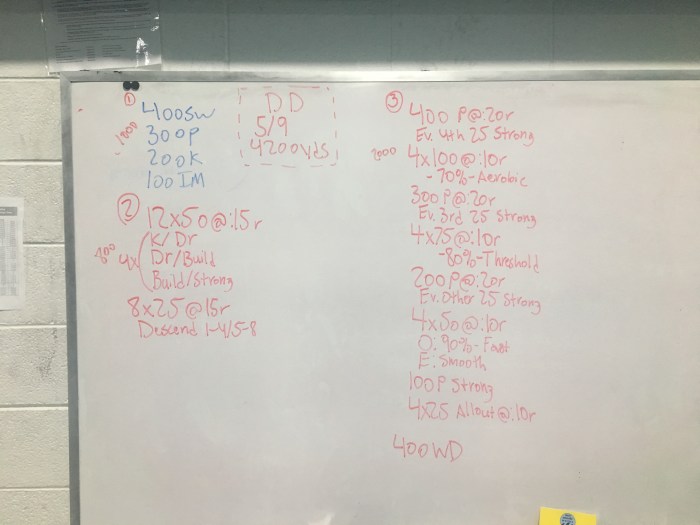 ①
400sw
1000
300P
200K
100 IM
DD
5/9
4200yds
②
12x50@:15r
K/Dr
800 4x
Dr/Build
Build/Strong
8x25@15r
Descend 1-4/5-8
③
400 P@:20r
Ev. 4th 25 Strong
2000
4x100@:10r
-70%-Aerobic
300P@:20r
Ev. 3rd 25 Strong
4x75@:10r
-80%-Threshold
200P@:20r
Ev. Other 25 Strong
4x50@:10r
O: 90%-Fast
E: Smooth
100P Strong
4x25 Allout@:10r
400WD